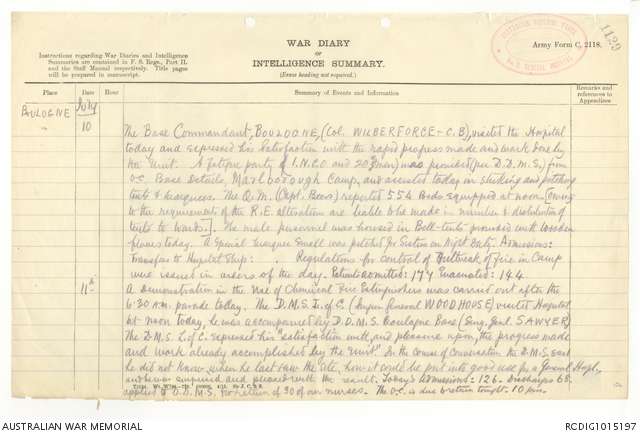 WAR DIARY
OR
INTELLIGENCE SUMMARY.
(Erase heading not required.)
Instructions regarding War Diaries and Intelligence
Summaries are contained in F. S. Regs., Part II.
and the Staff Manual respectively. Title pages
will be prepared in manuscript.
Army Form C. 2118.
1129
Place
Date
Hour
Summary of Events and Information
Remarks and
references to
Appendices
BOULOGNE
July
" 10
The Base Commandant, BOULOGNE, (Col. WILBERFORCE - C.B), visited the Hospital
today and expressed his satisfaction with the rapid progress made and work done by
the Unit. A fatigue party of 1. N.C.O and 20 (men) was provided (per D.D.M.S.) from
O.C. Base Details, Marlborough Camp, and assisted today in striking and pitching
tents & marquees. The Q.M. (Capt. ) reported 554 Beds equipped at noon [owing
to the requirements of the R.E. alteration are liable to be made in number & distribution of
tents to wards]. The male personnel was housed in Bell-tents provided with wooden
floors today. A special marquee small was pitched for Sisters on Night Duty. Admissions:
Transfers to Hospital Ship: . Regulations for control of Outbreak of Fire in Camp
were issued in orders of the day. Patients admitted: 174 Evacuated: 144
11th
A demonstration in the Use of Chemical Fire Extinguishers was carried out after the
6.30 a.m. parade today. The D.M.S. L. of C. (Surgeon General WOODHOUSE) visited Hospital
at noon today, he was accompanied by D.D.M.S. Boulogne Base (Surg. Genl. SAWYER)
The D.M.S. L. of C. expressed his "satisfaction with, and pleasure upon, the progress made
and work already accomplished by the Unit". In the course of conversation the D.M.S. said
he did not know when he last saw the site, how it could be put into good use for a General Hospl.,
and he was surprised and pleased with the result. Today's Admissions: 126. Discharges 65.
applied to D.D.M.S. for return of 30 of our nurses. The O.C. is due to return tonight. 10 p.m.
AUSTRALIAN WAR MEMORIAL
RCDIG1015197